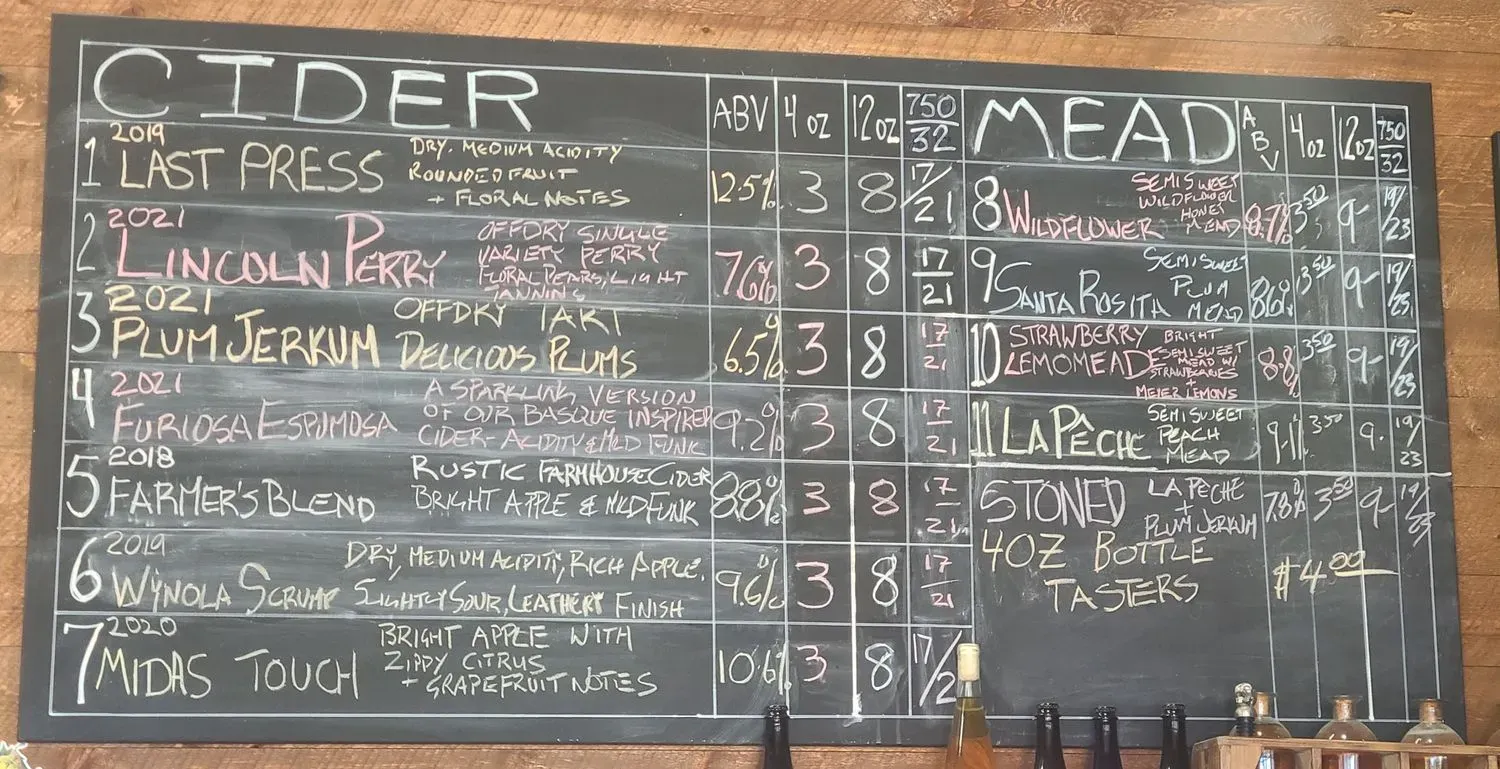 CIDER ABV 4 oz 12 oz 750/32
1 2019 LAST PRESS
DRY. MEDIUM ACIDITY
ROUNDED FRUIT
+ FLORAL NOTES
12.5% 3 8 17/21
2 2021 LINCOLN PERRY
OFFDRY SINGLE
VARIETY PERRY
FLORAL PEARS, LIGHT
TANNINS
7.6% 3 8 17/21
3 2021 PLUM JERKUM
OFFDRY TART
DELICIOUS PLUMS
6.5% 3 8 17/21
4 2021 FURIOSA ESPUMOSA
A SPARKLING VERSION
OF OUR BASQUE INSPIRED
CIDER - ACIDITY & MILD FUNK
9.2% 3 8 17/21
5 2018 FARMER'S BLEND
RUSTIC FARMHOUSE CIDER
BRIGHT APPLE & MILD FUNK
8.8% 3 8 17/21
6 2019 WYNOLA SCRUMP
DRY, MEDIUM ACIDITY, RICH APPLE.
SLIGHTLY SOUR, LEATHERY FINISH
9.6% 3 8 17/21
7 2020 MIDAS TOUCH
BRIGHT APPLE WITH
ZIPPY CITRUS
+ GRAPEFRUIT NOTES
10.6% 3 8 17/2
MEAD ABV 4 oz 12 oz 750/32
8 WILDFLOWER
SEMISWEET
WILDFLOWER
HONEY
MEAD
8.7% 3.50 9- 19/23
9 SANTA ROSITA
SEMISWEET
PLUM
MEAD
8.6% 3.50 9- 19/23
10 STRAWBERRY
LEMOMEADE
BRIGHT
SEMISWEET
MEAD W/
STRAWBERRIES
+
MEYER LEMONS
8.8% 3.50 9- 19/23
11 LA PÊCHE
SEMISWEET
PEACH
MEAD
9.1% 3.50 9- 19/23
STONED
LA PÊCHE
+
PLUM JERKUM
7.8% 3.50 9- 19/23
4OZ BOTTLE
TASTERS
$4.00